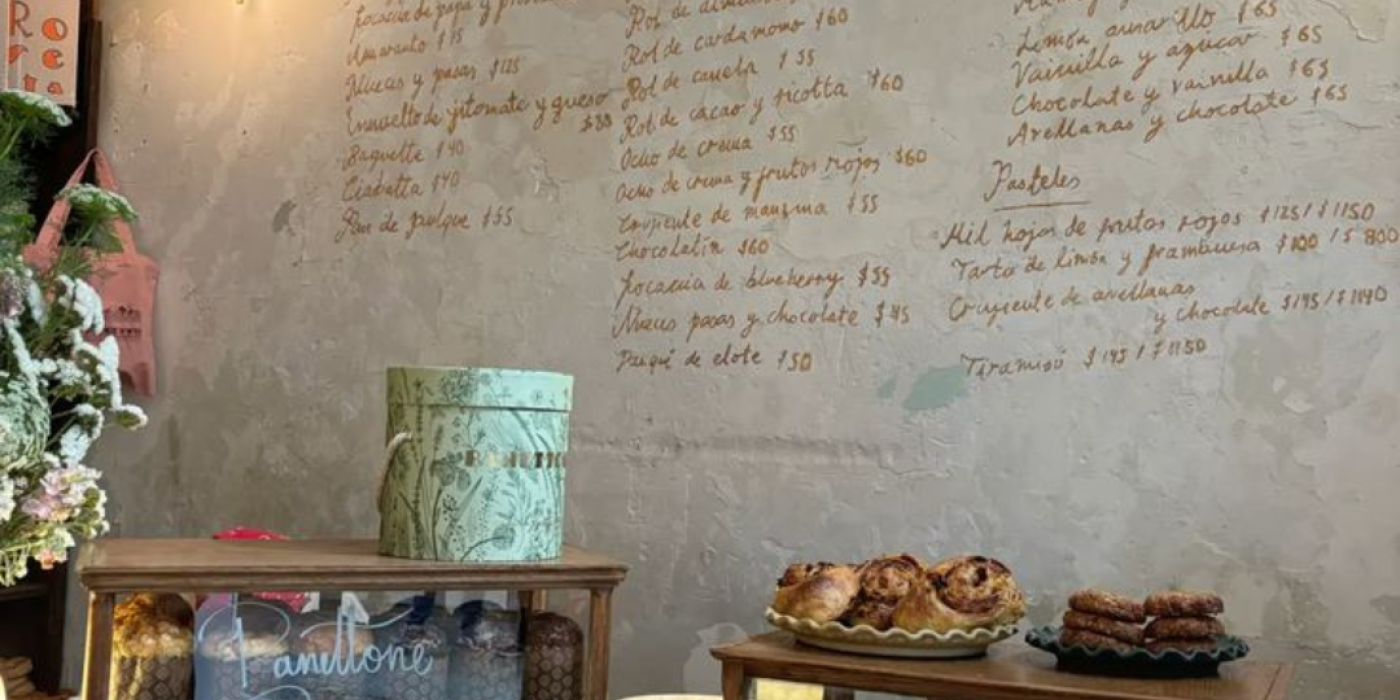 Ro
se
focaccia de papa y
Amaranto $75
Nueces y pasas $125
Envuelto de jitomate y queso
$80
Baguette $40
Ciabatta $40
Pan de pulque $55
Rol de
Rol de cardamomo $60
Rol de canela $55
Rol de cacao y ricotta $60
Ocho de crema $55
Ocho de crema y frutos rojos $60
Crujiente de manzana $55
Chocolatín $60
focaccia de blueberry $55
Nueces pasas y chocolate $45
Panqué de elote $50
Limón amarillo $65
Vainilla y azúcar $65
Chocolate y vainilla $65
Avellanas y chocolate $65
Pasteles
Mil hojas de frutos rojos $125/$1150
Tarta de limón y frambuesa $100/$800
Crujiente de avellanas
y chocolate $145/$1140
Tiramisú $145/$1150
Panettone